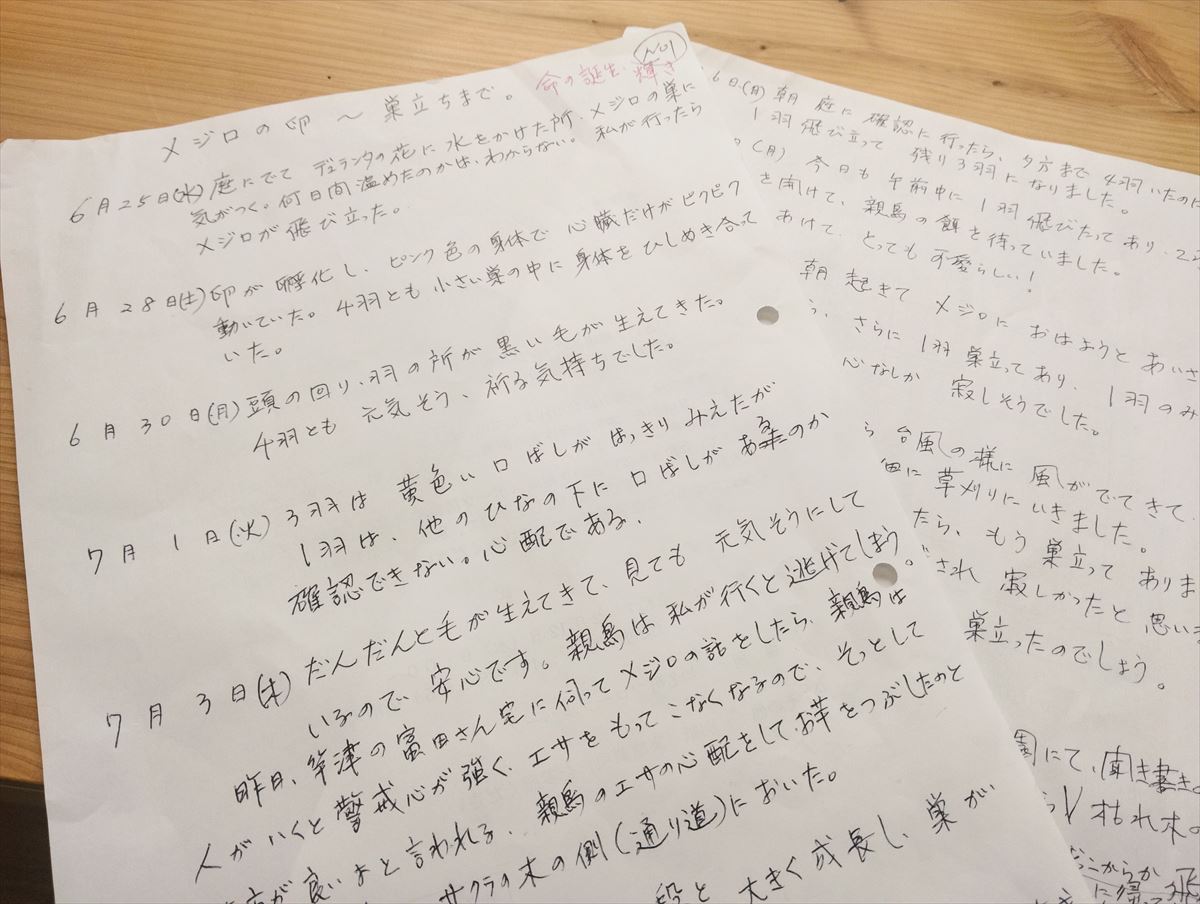 No1
メジロの卵～巣立ちまで。 命の誕生・輝き
6月25日(水) 庭にでて デュランタの花に 水をかけた所、メジロの巣に
気がつく。何日間温めたのかは、わからない。私が行ったら
メジロが飛び立った。
6月28日(土) 卵が孵化し、ピンク色の身体で 心臓だけがピクピク
動いていた。4羽とも 小さい巣の中に身体をひしめき合って
いた。
6月30日(月) 頭の回り、羽の所が黒い毛が生えてきた。
4羽とも 元気そう、祈る気持ちでした。
7月1日(火) 3羽は 黄色い口ばしがはっきりみえたが
1羽は、他のひなの下に口ばしがあるのか
確認できない。心配である。
7月3日(木) だんだんと毛が生えてきて、見ても 元気そうにして
いるので、安心です。親鳥は私が行くと逃げてしまう。
昨日、竿津の富田さん宅に伺ってメジロの話をしたら、親鳥は
人がいくと警戒心が強く、エサをもってこなくなるので、そっとして
方が良いよと言われる、親鳥のエサの心配をして、お芋をつぶしたのと
サクラの木の側(通り道)においた。
段と 大きく成長し、巣が
6日(月) 朝 庭に 確認に行ったら、夕方まで 4羽いたのに
1羽 飛び立って 残り3羽になりました。
(月) 今日も 午前中に 1羽 飛びたってあり、2
を開けて、親鳥の餌を待っていました。
あけて、とっても可愛らしい！
朝 起きて メジロに おはようと あいさ
ら、さらに1羽 巣立ってあり、1羽のみ
心なしか 寂しそうでした。
ら 台風の様に 風がでてきて
に 草刈りにいきました。
たら、もう 巣立って ありま
され 寂しかったと 思い
巣立ったのでしょう。
園にて、聞き書き
枯れ木の
どこからか
に帰って 飛